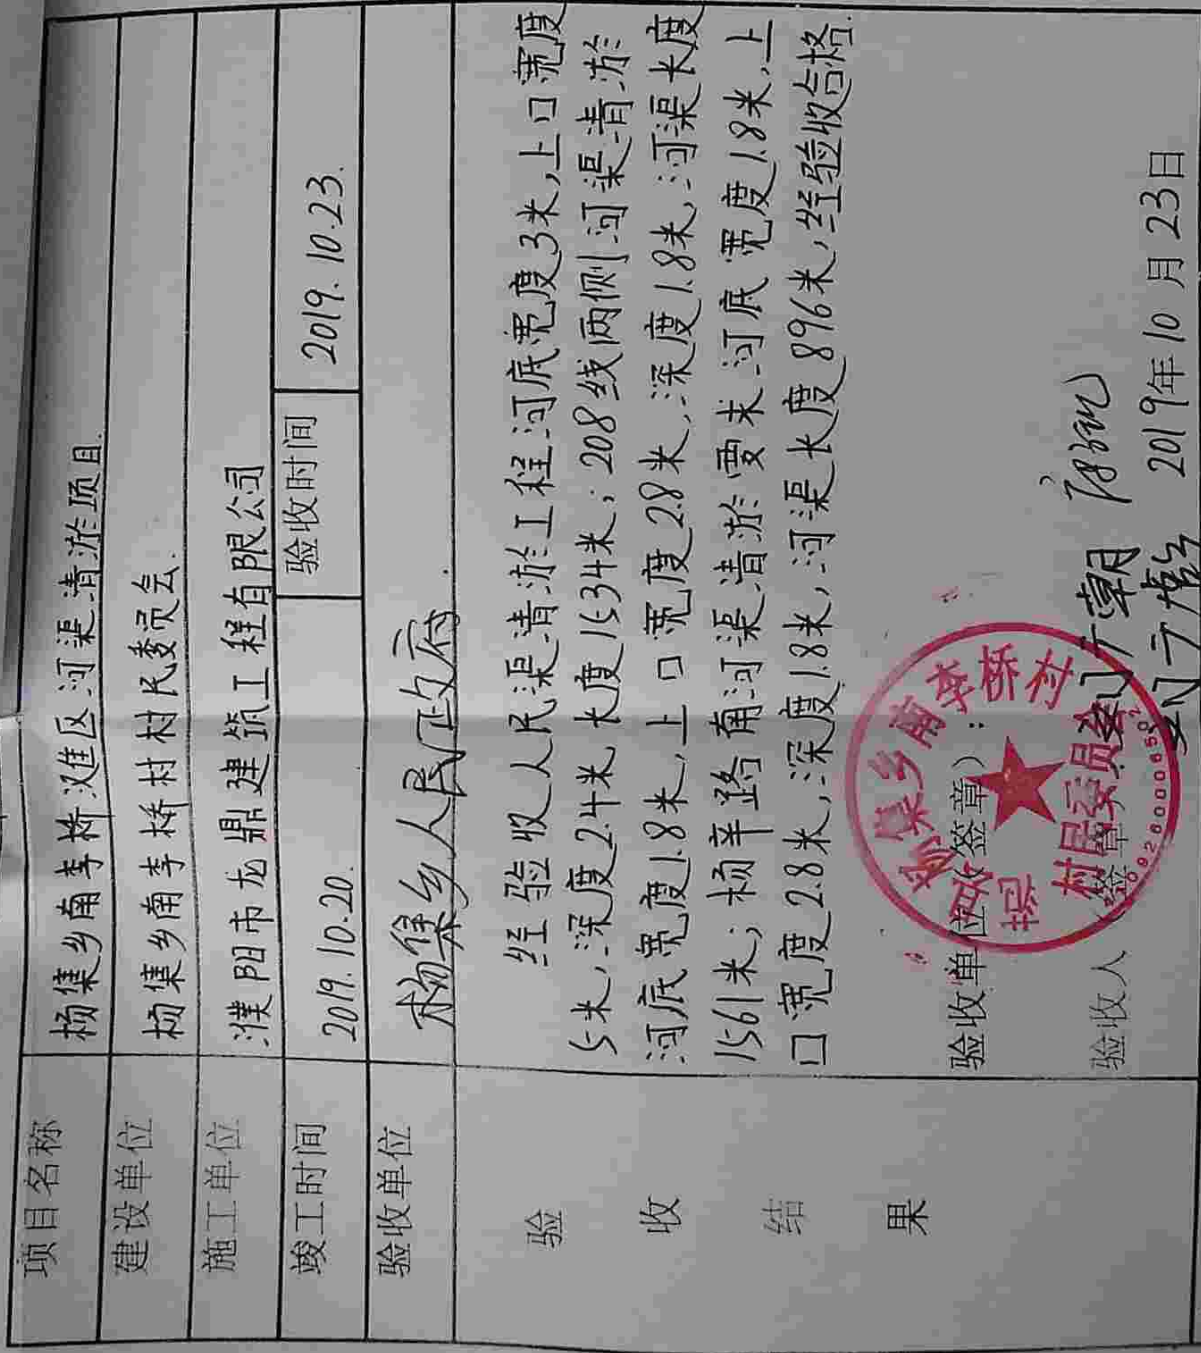 项目名称 杨集乡南李桥滩区河渠清淤项目.
建设单位 杨集乡南李桥村村民委员会.
施工单位 濮阳市龙鼎建筑工程有限公司
竣工时间 2019.10.20. 验收时间 2019.10.23.
验收单位 杨集乡人民政府.
验收结果
经验收人民渠清淤工程河底宽度3米,上口宽度
5米,深度2.4米长度1534米;208线两侧河渠清淤
河底宽度1.8米,上口宽度2.8米,深度1.8米,河渠长度
1561米;杨辛路南河渠清淤要求河底宽度1.8米,上
口宽度2.8米,深度1.8米,河渠长度896米,经验收合格.
验收单位(签章):
杨集乡南李桥村
村民委员会
验收人(签章)
2019年10月23日